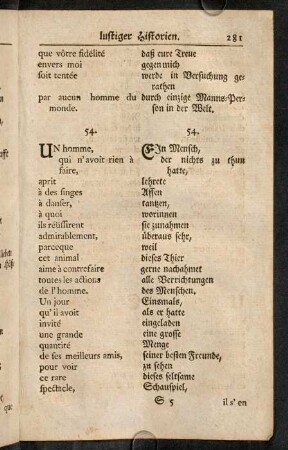 lustiger Historien. 281
que vôtre fidélité daß eure Treue
envers moi gegen mich
soit tentée werde in Versuchung ge-
rathen
par aucun homme du durch einzige Manns-Per-
monde. son in der Welt.
54. 54.
UN homme, EIn Mensch,
qui n'avoit rien à der nichts zu thun
faire, hatte,
aprit lehrete
à des singes Affen
à danser, tantzen,
à quoi worinnen
ils réüssirent sie zunahmen
admirablement, überaus sehr,
parceque weil
cet animal dieses Thier
aime à contrefaire gerne nachahmet
toutes les actions alle Verrichtungen
de l'homme. des Menschen.
Un jour Einsmals,
qu'il avoit als er hatte
invité eingeladen
une grande eine grosse
quantité Menge
de ses meilleurs amis, seiner besten Freunde,
pour voir zu sehen
ce rare dieses seltsame
spectacle, Schauspiel,
S 5 il s' en